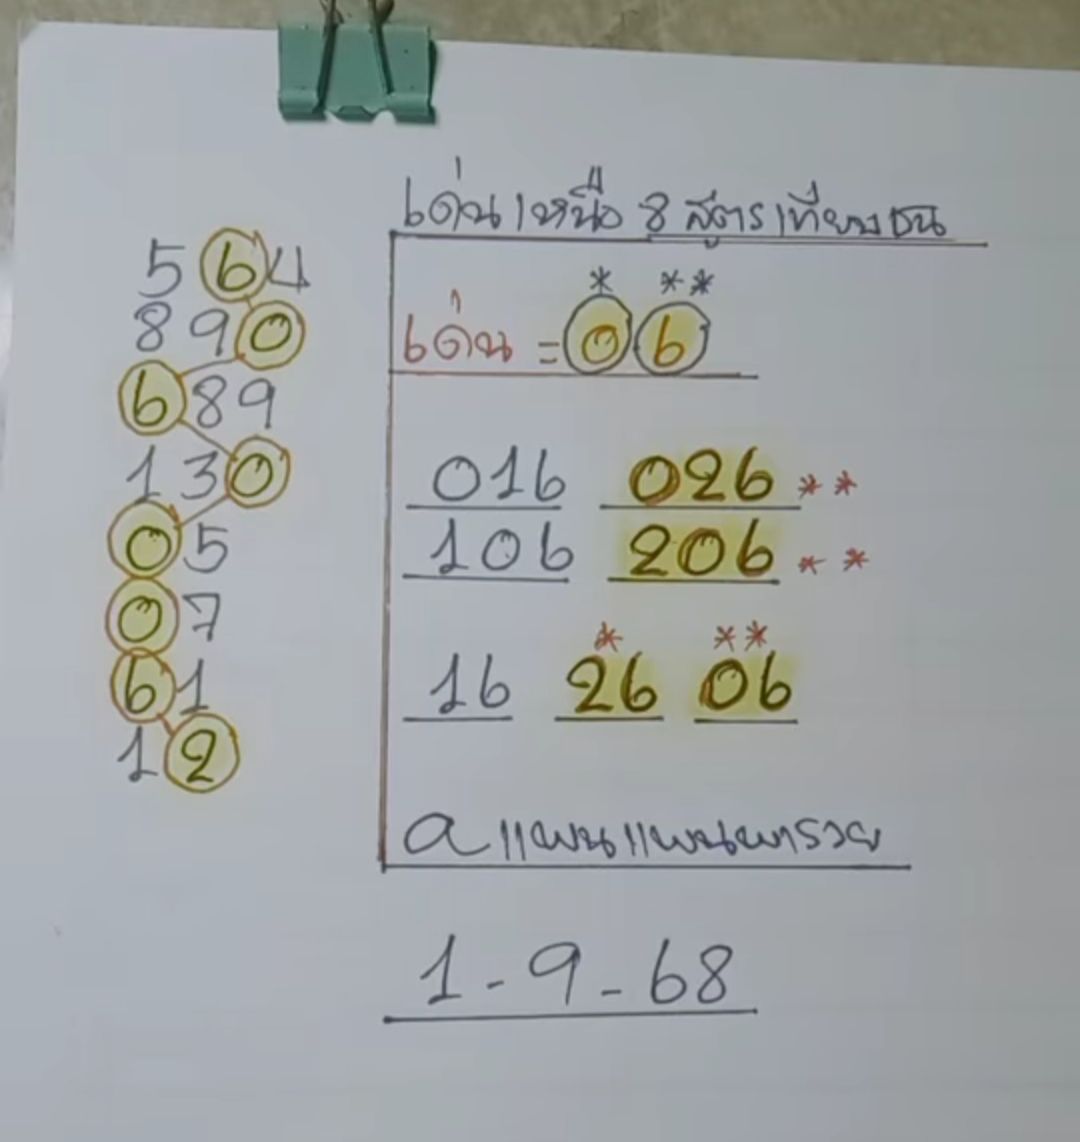 เด่นเหนือ 8 สูตรเทียบชน
564
890
689
130
05
07
61
12
* **
เด่น = 0 6
016 026 **
106 206 **
* **
16 26 06
a แฟนแพนพารวย
1-9-68